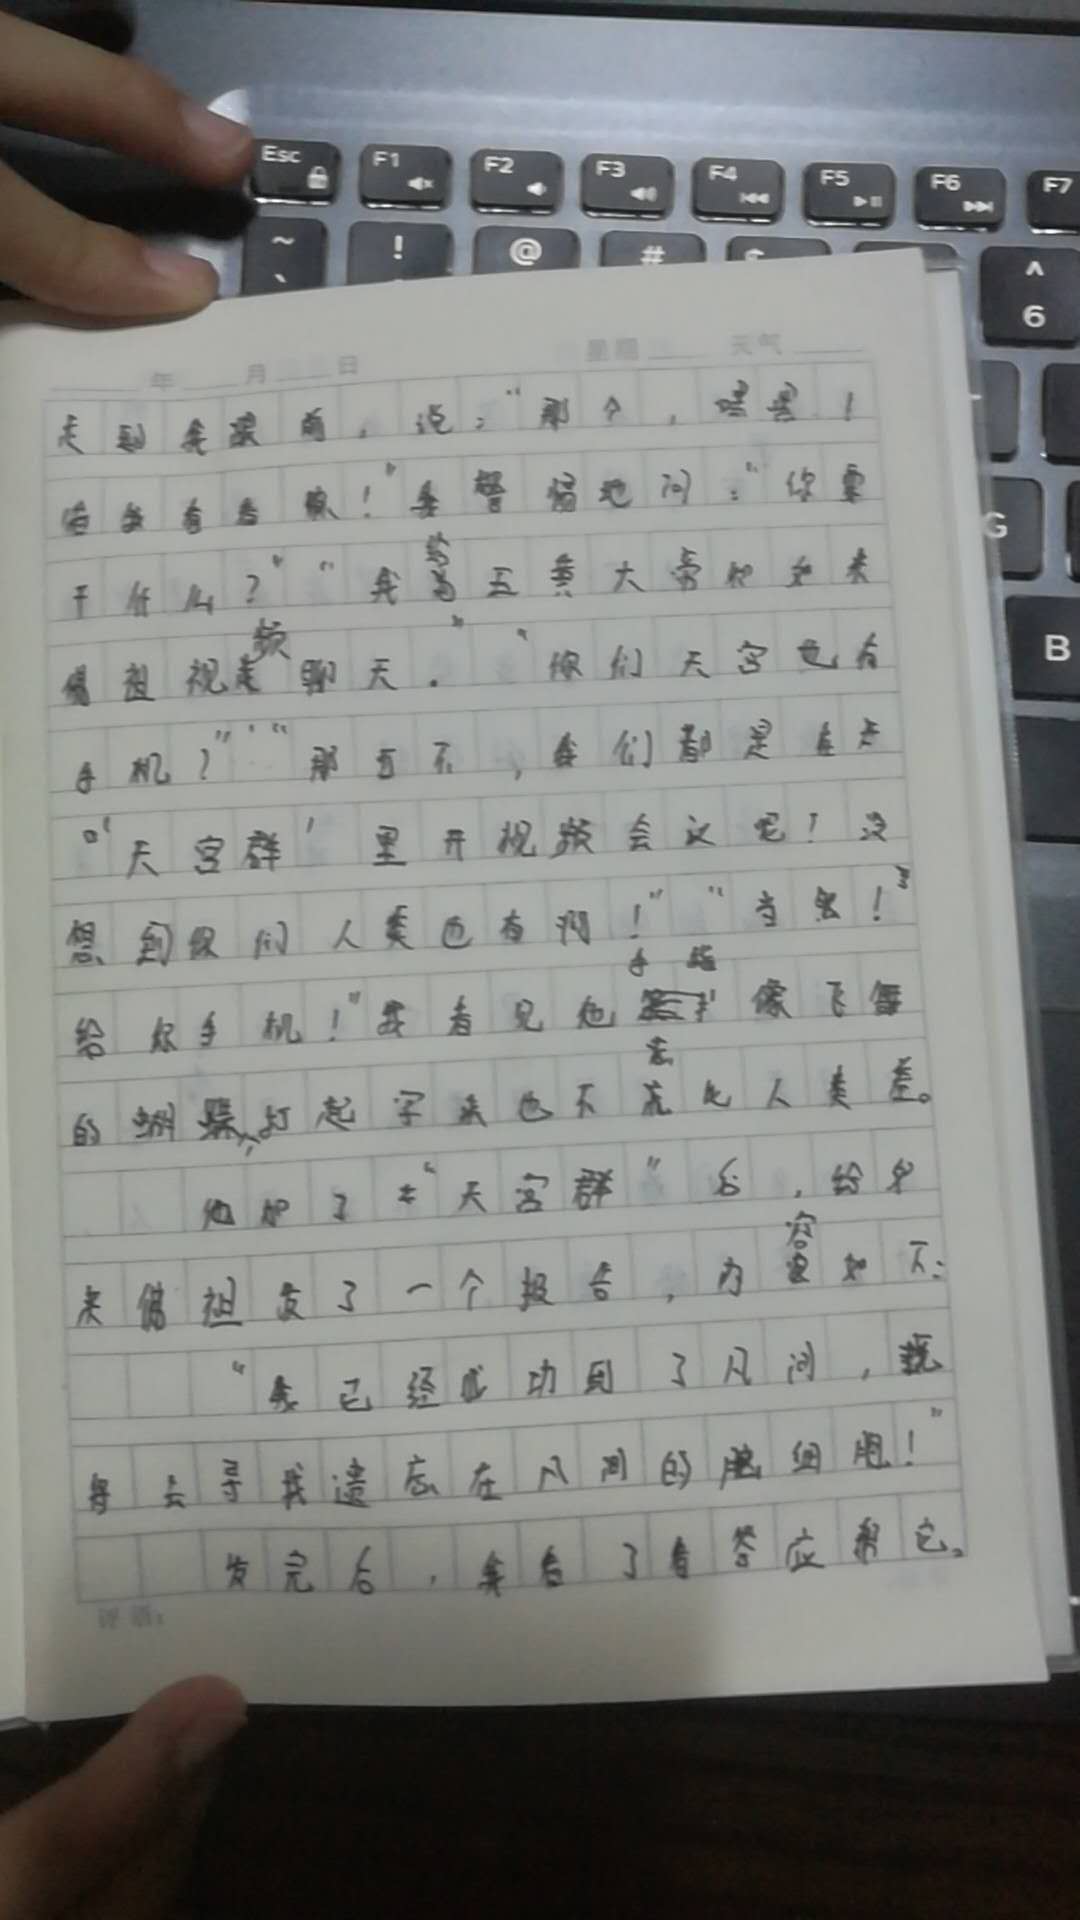 Esc F1 F2 F3 F4 F5 F6 F7
~ ! @ # ^
` 6
G
B
年 月 日 星期 天气
走到我跟前，说：“那个，嘿嘿！
”我警惕地问：“你要
干什么？”“我 给 五 黄 大 如来
佛祖视频聊天。”“你们天宫也有
手机？”“那可不，我们都是在
“天宫群”里开视频会议呢！没
想到你们人类也有啊！”“当然！
给你手机！”我看见他手指像飞舞
的蝴蝶，打起字来也不比人类差。
他加了“天宫群”后，给如
来佛祖发了一个报告，内容如下：
“我已经成功到了凡间，现
去寻找遗忘在凡间的脑细胞！”
发完后，我 了 答应帮它。
评语：